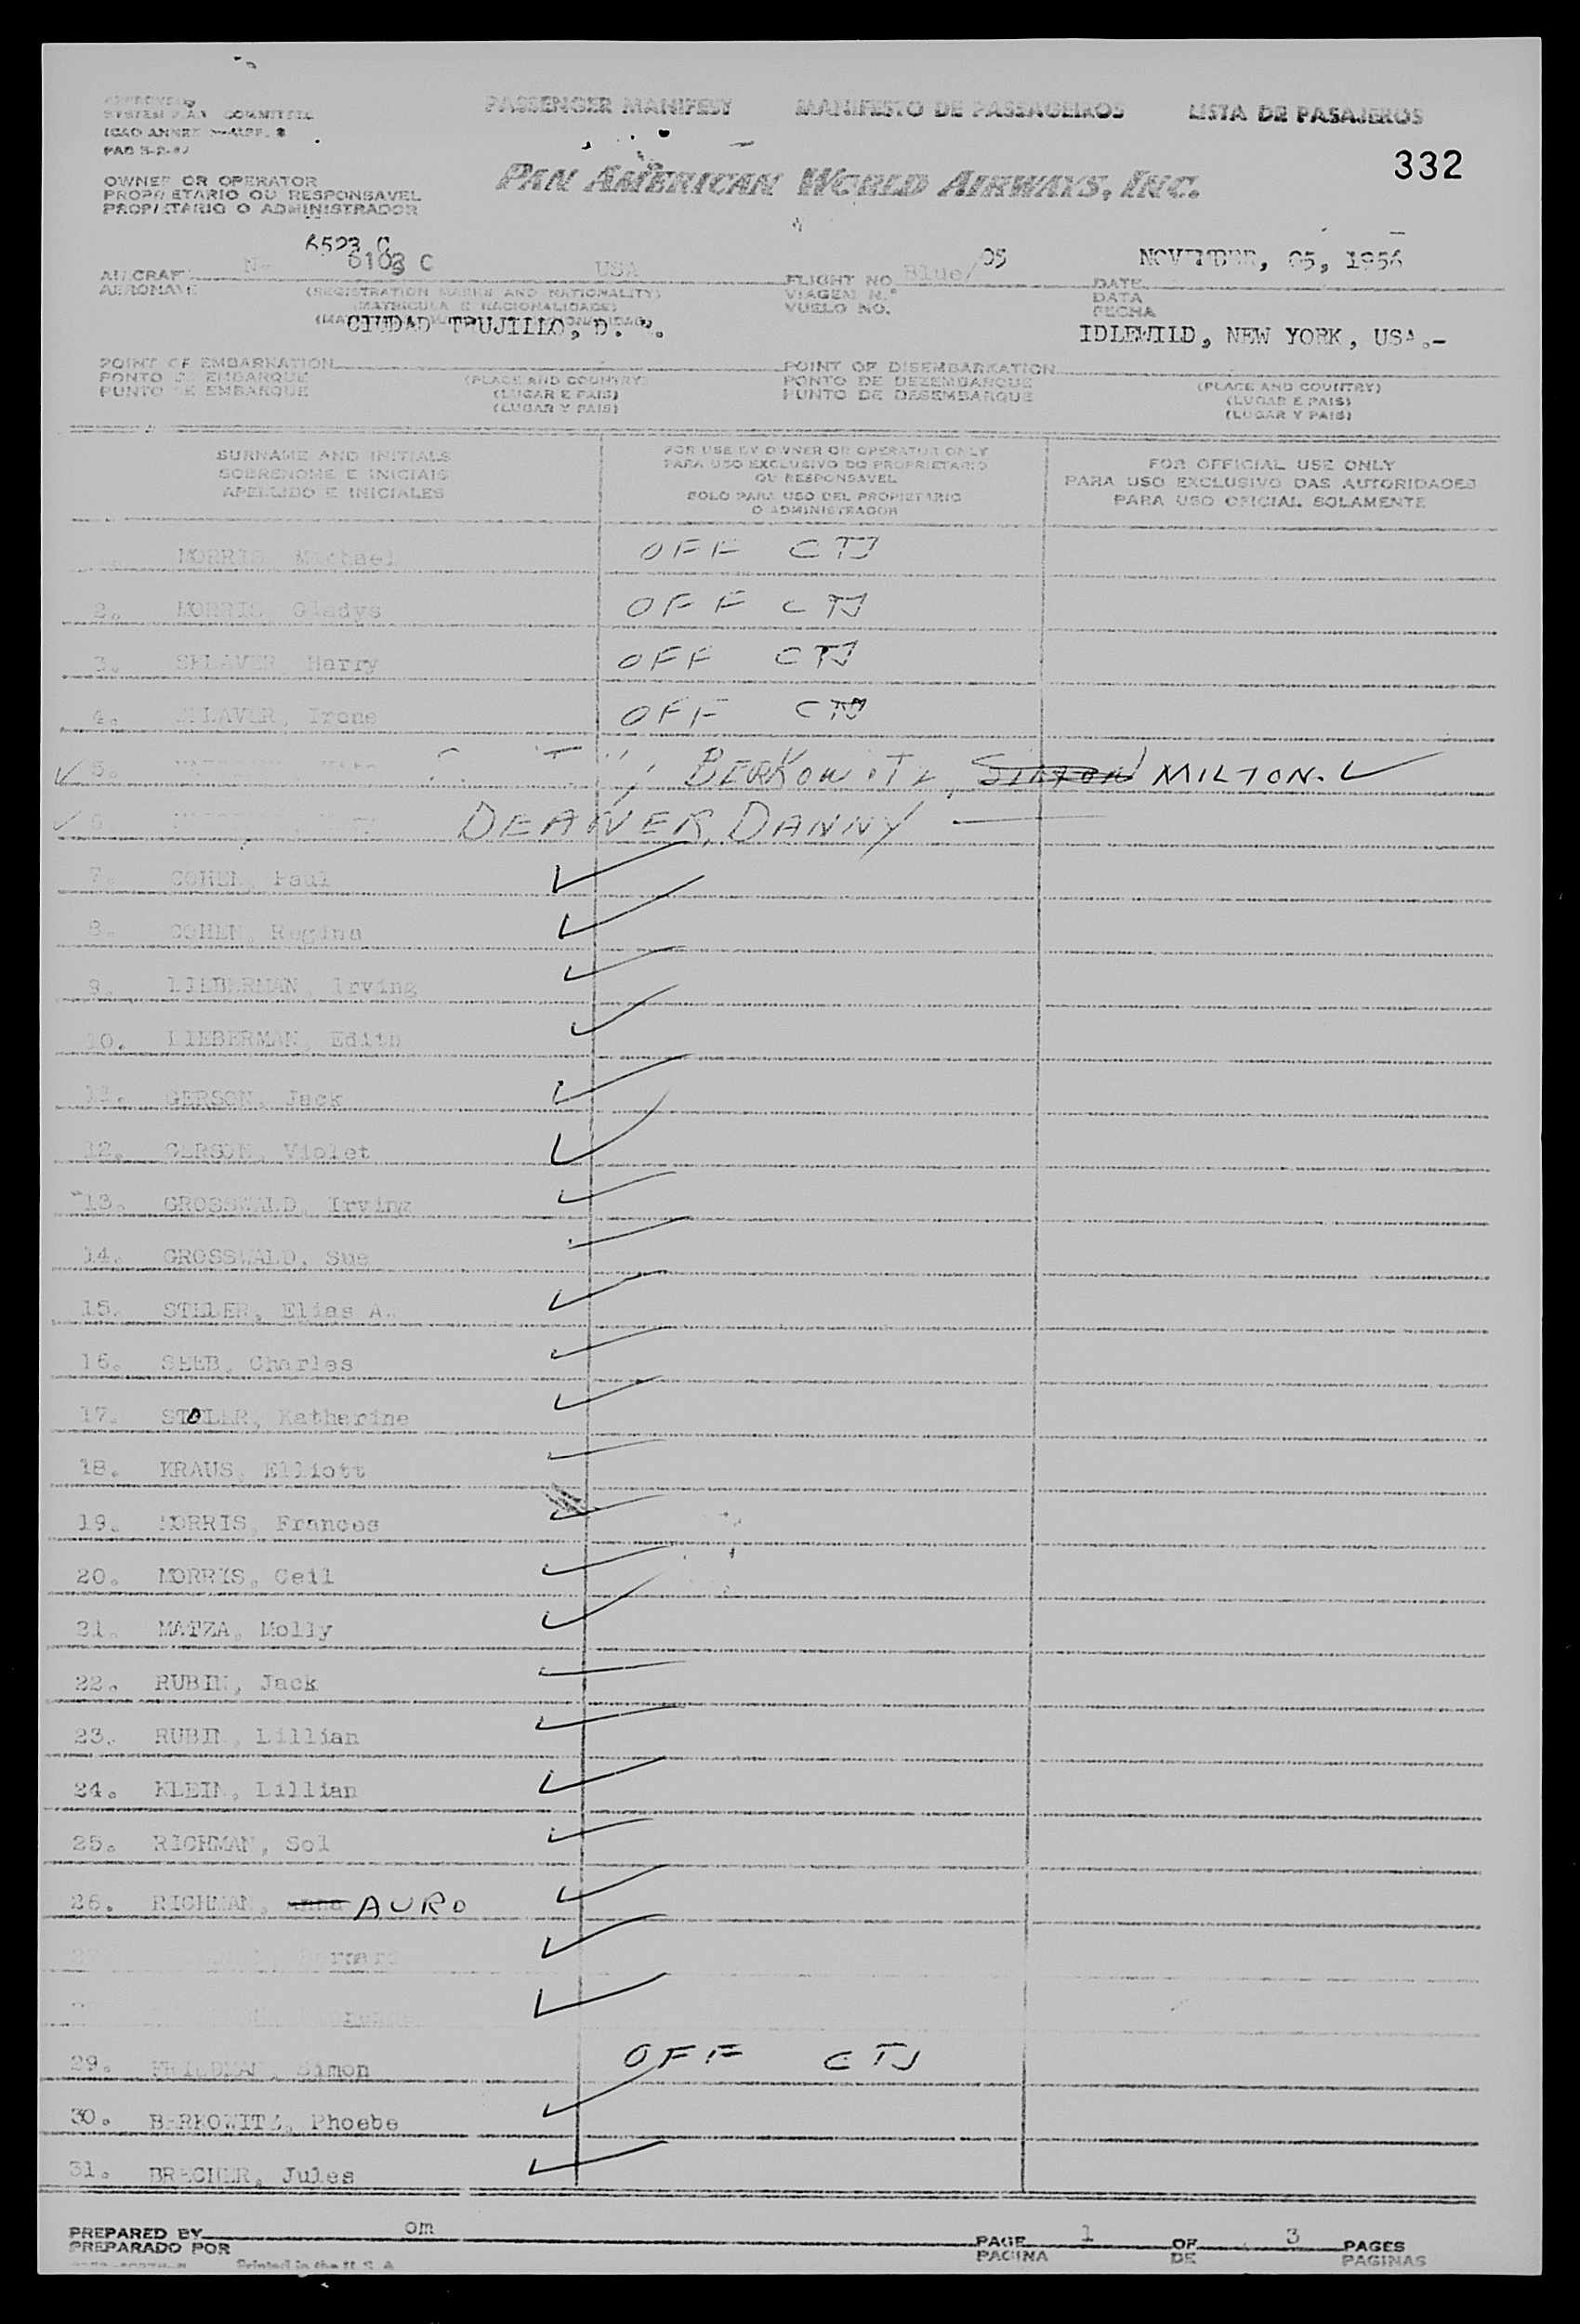 PASSENGER MANIFEST MANIFESTO DE PASSAGEIROS LISTA DE PASAJEROS
APPROVED
SYSTEM COMMITTEE
ICAO ANNEX
332
PAN AMERICAN WORLD AIRWAYS, INC.
OWNER OR OPERATOR
PROPRIETARIO OU RESPONSAVEL
PROPIETARIO O ADMINISTRADOR
6523 C
N- 6103 C USA Blue/ 05 NOVEMBER, 05, 1956
AIRCRAFT FLIGHT NO. DATE
AERONAVE (REGISTRATION MARKS AND NATIONALITY) VIAGEM N.º DATA
(MATRICULA E NACIONALIDADE) VUELO NO. FECHA
CIUDAD TRUJILLO, D. IDLEWILD, NEW YORK, USA.-
POINT OF EMBARKATION POINT OF DISEMBARKATION
PONTO DE EMBARQUE (PLACE AND COUNTRY) PONTO DE DEZEMBARQUE (PLACE AND COUNTRY)
PUNTO DE EMBARQUE (LUGAR E PAIS) PUNTO DE DESEMBARQUE (LUGAR E PAIS)
(LUGAR Y PAIS) (LUGAR Y PAIS)
SURNAME AND INITIALS
SOBRENOME E INICIAIS
APELLIDO E INICIALES
FOR USE BY OWNER OR OPERATOR ONLY
PARA USO EXCLUSIVO DO PROPRIETARIO
OU RESPONSAVEL
SOLO PARA USO DEL PROPIETARIO
O ADMINISTRADOR
FOR OFFICIAL USE ONLY
PARA USO EXCLUSIVO DAS AUTORIDADES
PARA USO OFICIAL SOLAMENTE
MORRIS, Michael OFF CTJ
2. MORRIS, Gladys OFF CTJ
3. SHLAVER, Harry OFF CTJ
4. SHLAVER, Irene OFF CTJ
5. BERKOWITZ, MILTON.
DEAVER, DANNY
7. COHEN, Paul
8. COHEN, Regina
9. LIEBERMAN, Irving
10. LIEBERMAN, Edith
11. GERSON, Jack
12. GERSON, Violet
13. GROSSWALD, Irving
14. GROSSWALD, Sue
15. STLLER, Elias A.
16. SEEB, Charles
17. STOLER, Katherine
18. KRAUS, Elliott
19. MORRIS, Frances
20. MORRIS, Ceil
21. MATZA, Molly
22. RUBIN, Jack
23. RUBIN, Lillian
24. KLEIN, Lillian
25. RICHMAN, Sol
26. RICHMAN, Anna AURO
29. FRIEDMAN, Simon OFF CTJ
30. BERKOWITZ, Phoebe
31. BRECHER, Jules
PREPARED BY om PAGE 1 OF 3 PAGES
PREPARADO POR PAGINA DE PAGINAS
Printed in the U. S. A.